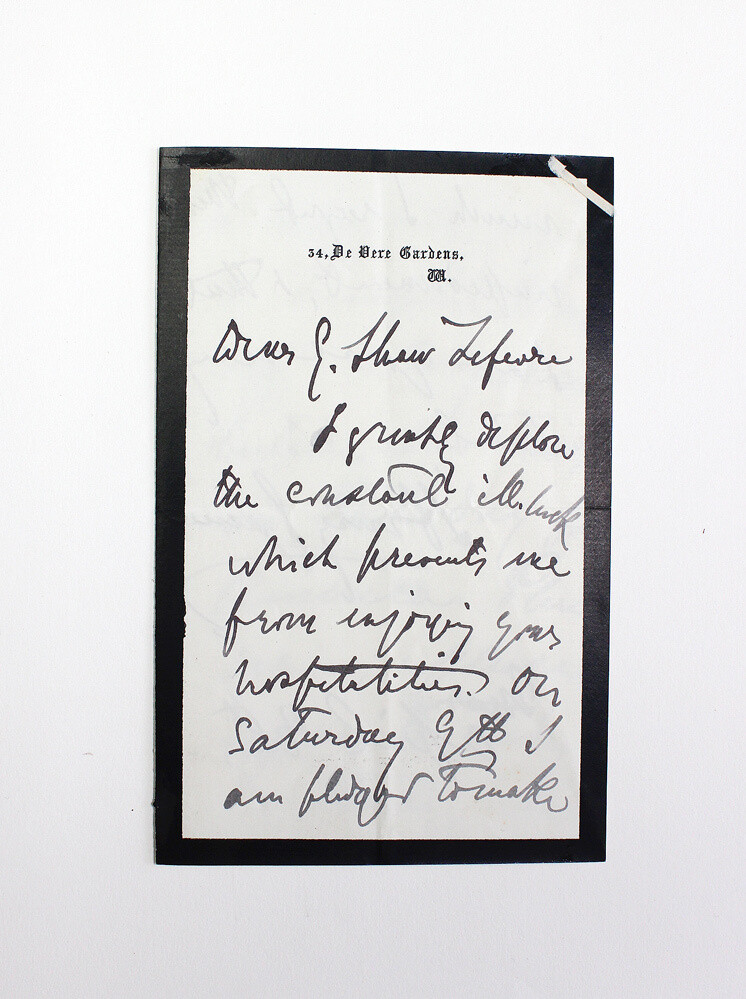 34, De Vere Gardens,
W.
Dear G. Shaw Lefevre
I greatly deplore
the constant ill-luck
which prevents me
from enjoying your
hospitalities. On
Saturday 9th I
am pledged to make